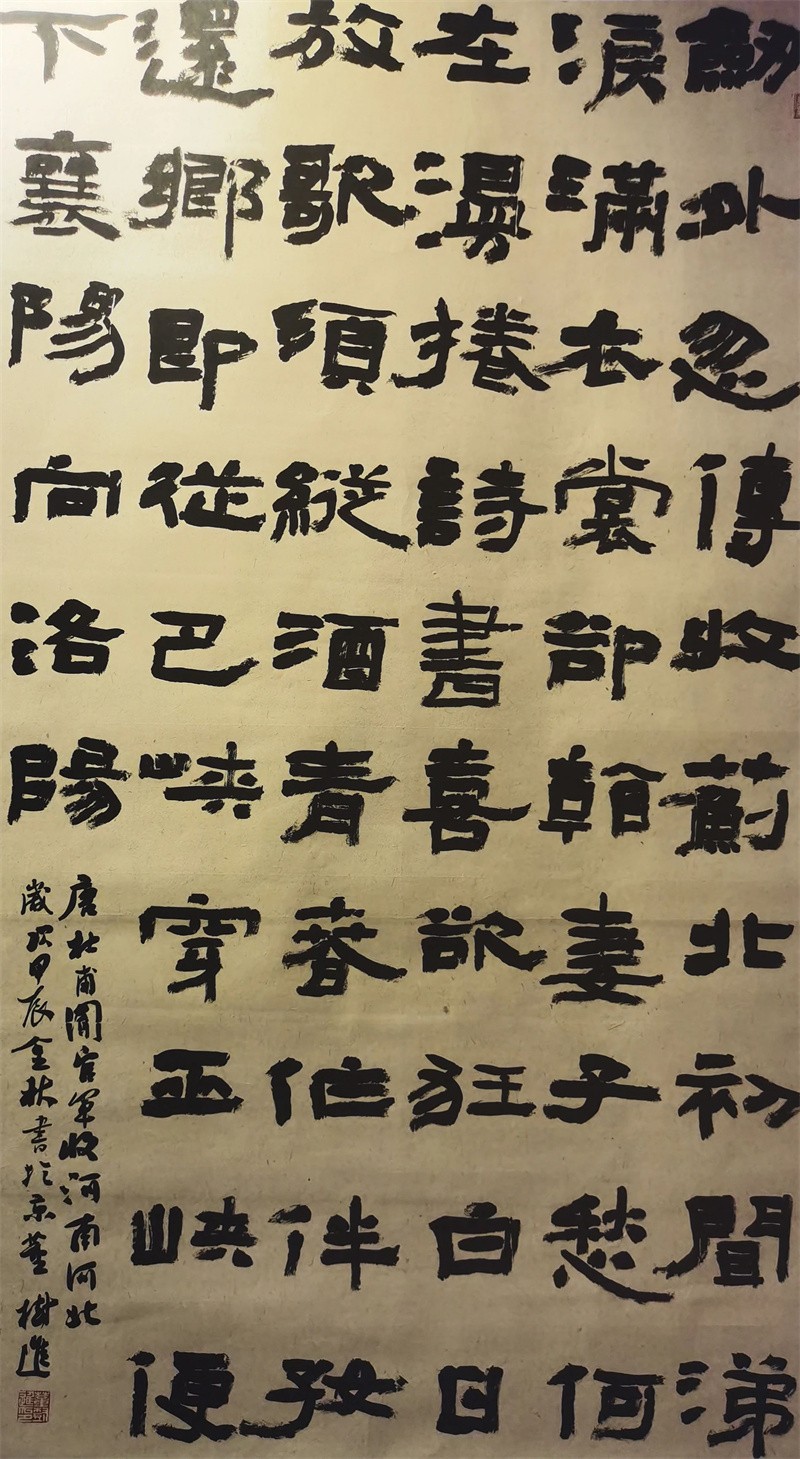 劒外忽傳收薊北初聞涕
淚滿衣裳卻看妻子愁何
在漫捲詩書喜欲狂白日
放歌須縱酒青春作伴好
還鄉即從巴峽穿巫峽便
下襄陽向洛陽
唐杜甫聞官軍收河南河北
歲次甲辰金秋書於京董樹進